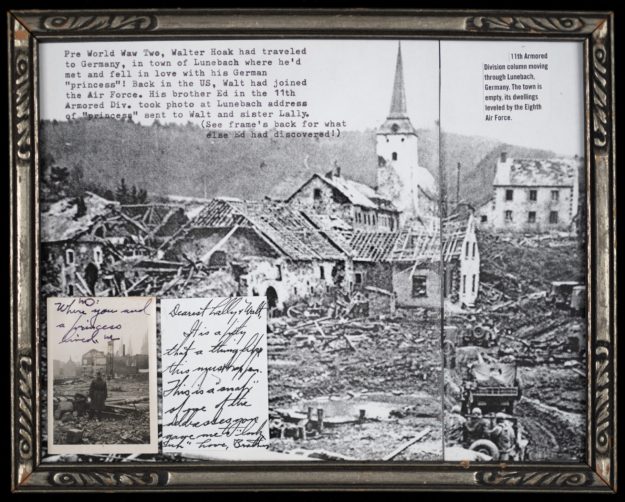 Pre World Waw Two, Walter Hoak had traveled
to Germany, in town of Lunebach where he'd
met and fell in love with his German
"princess"! Back in the US, Walt had joined
the Air Force. His brother Ed in the 11th
Armored Div. took photo at Lunebach address
of "princess" sent to Walt and sister Lally.
(See frame's back for what
else Ed had discovered!)
11th Armored
Division column moving
through Lunebach,
Germany. The town is
empty, its dwellings
leveled by the Eighth
Air Force.
Where you and
a princess
lived
Dearest Lally & Walt,
It is a pity
that a thing like
this must happen.
This is a "snap"
of one of the
addresses you
gave me to "look
Love, Brother